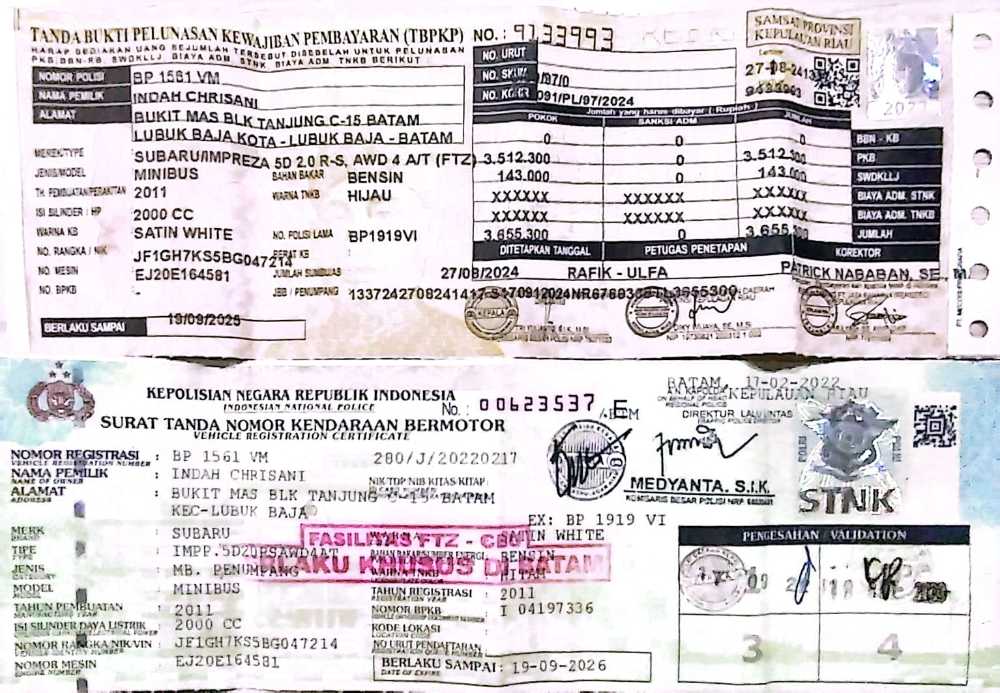 TANDA BUKTI PELUNASAN KEWAJIBAN PEMBAYARAN (TBPKP) NO. : 9733993
HARAP SEDIAKAN UANG SEJUMLAH TERSEBUT DISEBELAH UNTUK PELUNASAN
PKB, BBN-KB, SWDKLLJ, BIAYA ADM. STNK, BIAYA ADM. TNKB BERIKUT
SAMSAT PROVINSI
KEPULAUAN RIAU
NO. URUT
NO. SKUM /97/0
NO. KOHIR 091/PL/97/2024
NOMOR POLISI BP 1561 VM
NAMA PEMILIK INDAH CHRISANI
ALAMAT BUKIT MAS BLK TANJUNG C-15 BATAM
LUBUK BAJA KOTA - LUBUK BAJA - BATAM
MEREK/TYPE SUBARU/IMPREZA 5D 2.0 R-S, AWD 4 A/T (FTZ)
JENIS/MODEL MINIBUS BAHAN BAKAR BENSIN
TH. PEMBUATAN/PERAKITAN 2011 WARNA TNKB HIJAU
ISI SILINDER : HP 2000 CC
WARNA KB SATIN WHITE NO. POLISI LAMA BP1919VI
NO. RANGKA / NIK JF1GH7KS5BG047214 BERAT KB
NO. MESIN EJ20E164581 JUMLAH SUMBUAS
NO. BPKB : - JBB / PENUMPANG
BERLAKU SAMPAI 19/09/2025
Jumlah yang harus dibayar ( Rupiah )
POKOK SANKSI ADM JUMLAH
0 0 0 BBN - KB
3.512.300 0 3.512.300 PKB
143.000 0 143.000 SWDKLLJ
XXXXXX XXXXXX XXXXXX BIAYA ADM. STNK
XXXXXX XXXXXX XXXXXX BIAYA ADM. TNKB
3.655.300 0 3.655.300 JUMLAH
DITETAPKAN TANGGAL PETUGAS PENETAPAN KOREKTOR
27/08/2024 RAFIK - ULFA PATRICK NABABAN, SE, M
KEPALA
KEPOLISIAN NEGARA REPUBLIK INDONESIA
INDONESIAN NATIONAL POLICE
No. : 00623537
SURAT TANDA NOMOR KENDARAAN BERMOTOR
VEHICLE REGISTRATION CERTIFICATE
BATAM, 17-02-2022
KEPULAUAN RIAU
DIREKTUR LALU LINTAS
TRAFFIC POLICE DIRECTOR
MEDYANTA. S.I.K.
STNK
NOMOR REGISTRASI : BP 1561 VM 280/J/20220217
VEHICLE REGISTRATION NUMBER
NAMA PEMILIK : INDAH CHRISANI NIK TDP NIB KITAS KITAP :
NAME OF OWNER
ALAMAT : BUKIT MAS BLK TANJUNG BATAM
ADDRESS
KEC-LUBUK BAJA
EX: BP 1919 VI
MERK : SUBARU WHITE
BRAND
TIPE : IMPP. 5D20RSAWD4AT BAHAN BAKAR/SUMBER ENERGI : BENSIN
TYPE
JENIS : MB. PENUMPANG WARNA TNKB HITAM
CATEGORY
MODEL : MINIBUS TAHUN REGISTRASI : 2011
MODEL REGISTRATION YEAR
TAHUN PEMBUATAN : 2011 NOMOR BPKB : I 04197336
MANUFACTURE YEAR
ISI SILINDER DAYA LISTRIK : 2000 CC KODE LOKASI
LOCATION CODE
NOMOR RANGKA/NIK/VIN : JF1GH7KS5BG047214 NO URUT PENDAFTARAN
NOMOR MESIN : EJ20E164581
ENGINE NUMBER
BERLAKU SAMPAI : 19-09-2026
DATE OF EXPIRE
FASILITAS FTZ - CBU
KHUSUS DI BATAM
PENGESAHAN VALIDATION
3 4